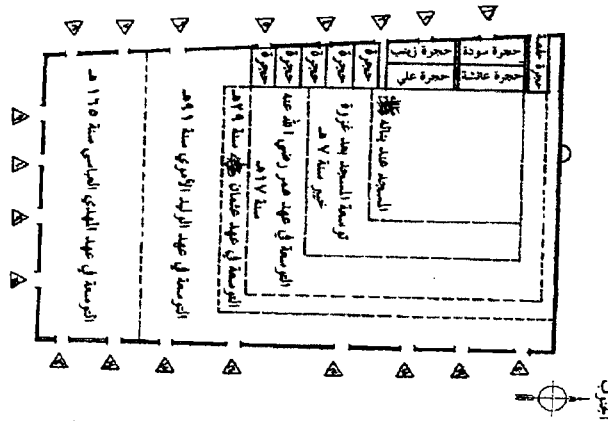 حجرة سودة
حجرة زينب
حجرة عائشة
حجرة علي
حجرة حفصة
حجرة
حجرة
حجرة
حجرة
حجرة
المسجد عند بنائه ﷺ
توسعة المسجد بعد غزوة
خيبر سنة ٧ هـ
التوسعة في عهد عمر رضي الله عنه
سنة ١٧ هـ
التوسعة في عهد عثمان سنة ٢٩ هـ
التوسعة في عهد الوليد الأموي سنة ٩١ هـ
التوسعة في عهد المهدي العباسي سنة ١٦٥ هـ
الجنوب